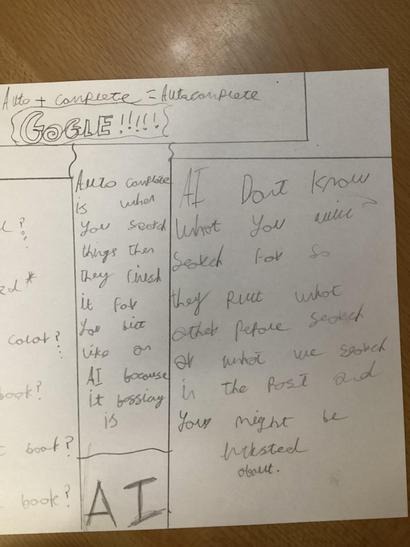 Auto + complete = Autocomplete
GOGLE!!!!!
?
ed*
color?
book?
boat?
book?
Auto complete
is when
you search
things then
they finish
it for
you bit
like an
AI because
it bassiay
is
AI
AI Dont know
what you
search for so
they put what
other pepore search
or what we search
in the past and
you might be
intrsted
about.